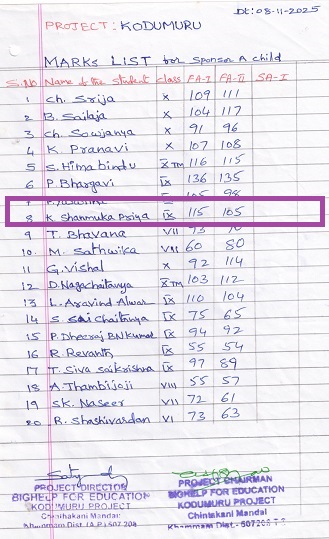 Dt: 08-11-2025
PROJECT: KODUMURU
MARKS LIST for Sponsor A child
S.No Name of the student class FA-I FA-II SA-I
1 Ch. Srija X 109 111
2 B. Sailaja X 104 117
3 Ch. Sowjanya X 91 96
4 K. Pranavi X 107 108
5 S. Himabindu X TM 116 115
6 P. Bhargavi IX 136 135
7 105 98
8 K Shanmuka Priya IX 115 105
9 T. Bhavana VII 70
10. M. Sathwika VII 60 80
11 G. Vishal X 92 114
12 D. Nagachaitanya X TM 103 112
13 L. Aravind Alwar IX 110 104
14 S. Sai Chaitanya IX 75 65
15 P. Dheeraj B.N Kumar IX 94 92
16 R. Revanth IX 55 54
17 T. Siva Saikrishna IX 97 89
18 A. Thambijoji VIII 55 57
19 SK. Naseer VII 72 61
20 R. Shashivardan VI 73 63
PROJECT DIRECTOR
BIGHELP FOR EDUCATION
KODUMURU PROJECT
Chinthakani Mandal
Khammam Dist. (A.P) 507 208
PROJECT CHAIRMAN
BIGHELP FOR EDUCATION
KODUMURU PROJECT
Chintakani Mandal
Khammam Dist.- 507208 T.S